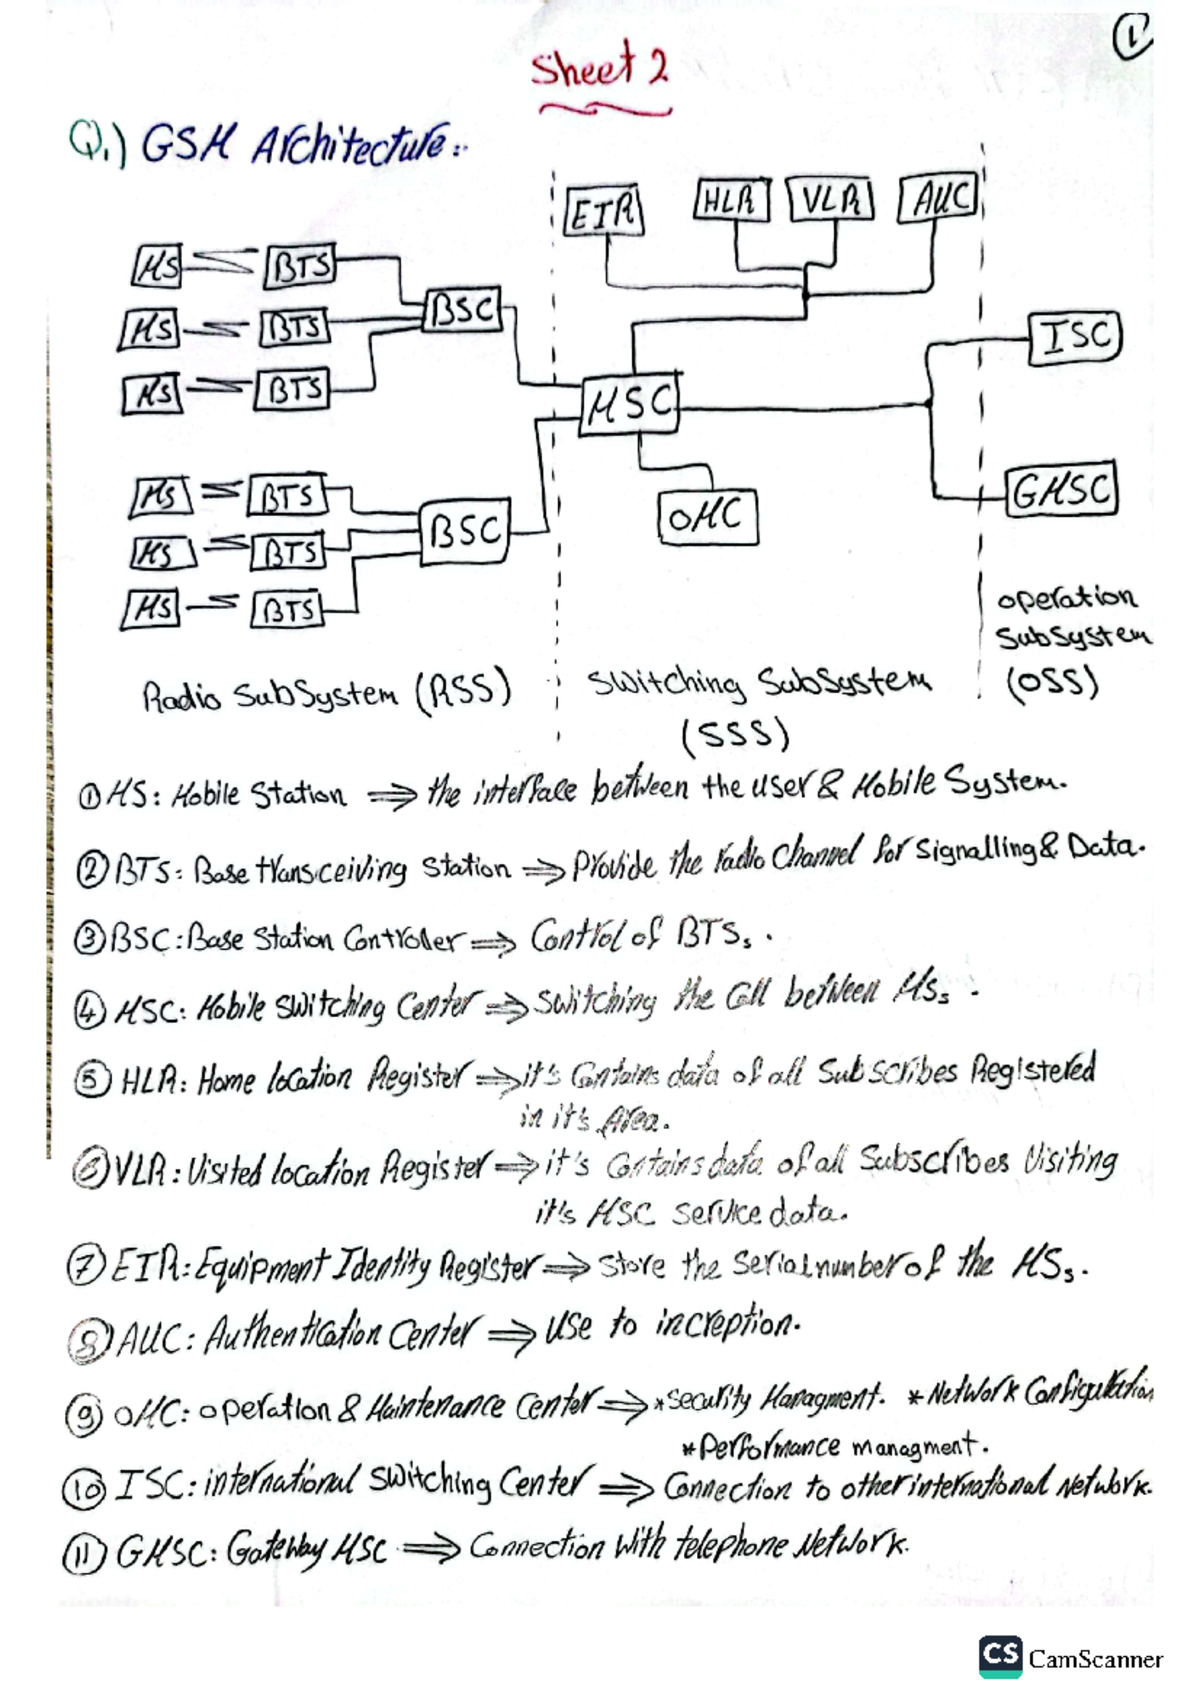 1
Sheet 2
Q.) GSM Architecture:
EIR HLR VLR AUC
MS BTS
MS BTS BSC
MS BTS
ISC
MSC
MS BTS
MS BTS BSC
MS BTS
OMC
GMSC
Radio SubSystem (RSS)
Switching SubSystem
(SSS)
operation
SubSystem
(OSS)
① MS: Mobile Station ⇒ the interface between the user & Mobile System.
② BTS: Base transceiving station ⇒ Provide the radio Channel for Signalling & Data.
③ BSC: Base Station Controller ⇒ Control of BTSs.
④ MSC: Mobile Switching Center ⇒ Switching the Call between MSs.
⑤ HLR: Home location Register ⇒ it's Contains data of all Subscribes Registered
in it's Area.
⑥ VLR: Visited location Register ⇒ it's Contains data of all Subscribes Visiting
it's MSC service data.
⑦ EIR: Equipment Identity Register ⇒ Store the Serial number of the MSs.
⑧ AUC: Authentication Center ⇒ Use to incréption.
⑨ OMC: operation & Maintenance Center ⇒ *Security Managment. *Network Configuration
*Performance managment.
⑩ ISC: international Switching Center ⇒ Connection to other international Network.
⑪ GMSC: Gateway MSC ⇒ Connection with telephone Network.
CS CamScanner